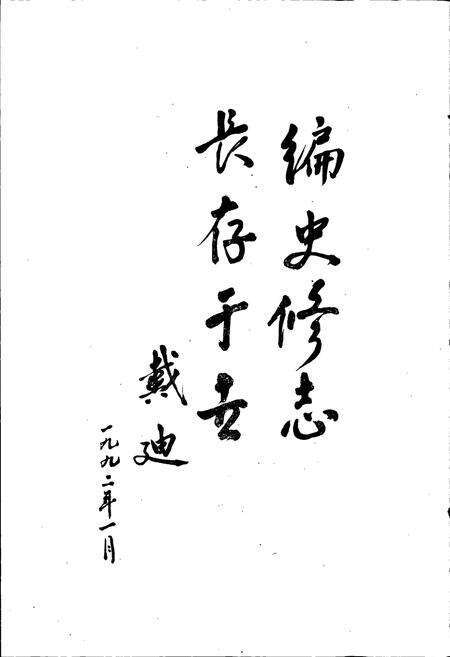 编史修志
長存于
戴迪
一九九二年一月